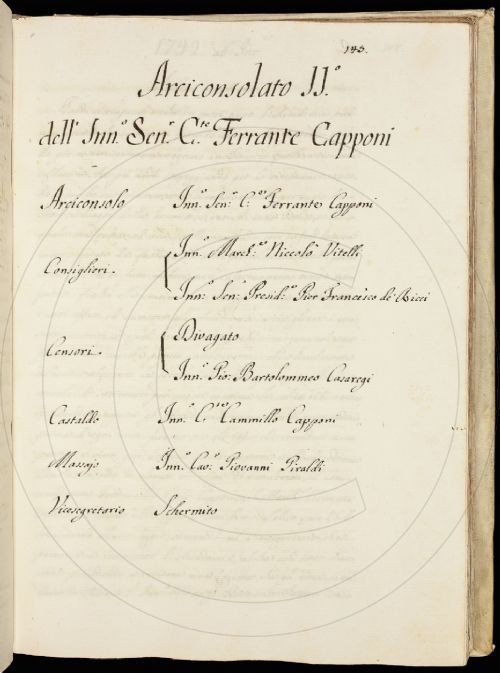 145.
Arciconsolato II.°
dell' Inn.° Sen.e C.te Ferrante Capponi
Arciconsolo Inn.° Sen.e C.te Ferrante Capponi
Consiglieri. Inn.° March.se Niccolò Vitelli
Inn.° Sen.e Presid.te Pier Francesco de' Ricci
Censori. Divagato
Inn.° Gio: Bartolommeo Casaregi
Castaldo Inn.° C.te Cammillo Capponi
Massajo Inn.° Cav.e Giovanni Giraldi
Vicesegretario Schermito